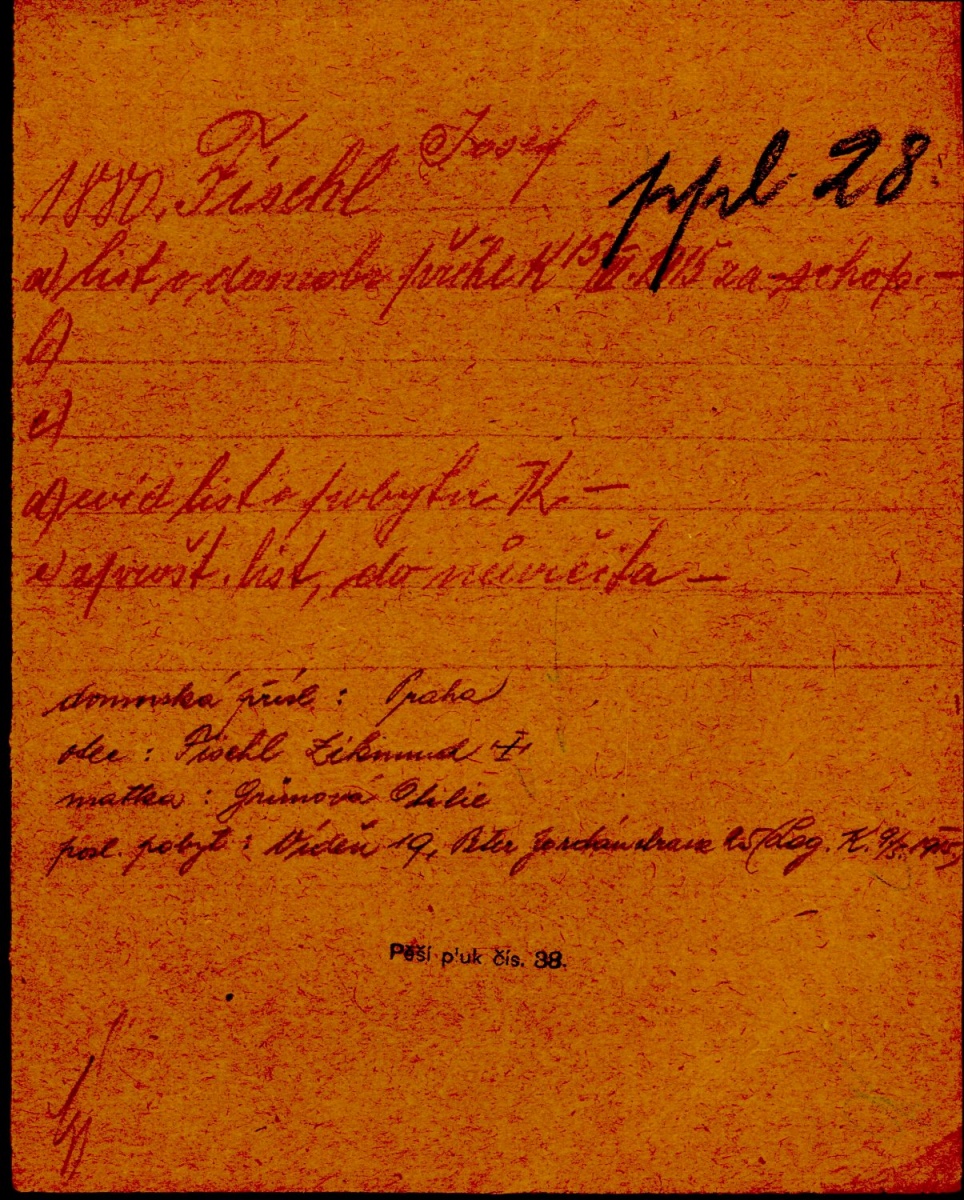 1880. Fischl Josef
ppl 28
a) list o domobr přihl. K 15/II. 1915 za schop. —
b)
c)
d) evid list o pobytu K. —
e) zprošt. list, do neurčita —
domovská přísl : Praha
otec : Fischl Zikmund †
matka : Grünová Otilie
posl. pobyt : Vídeň 19, Peter Jordánstrasse K.
Pěší pluk čís. 38.